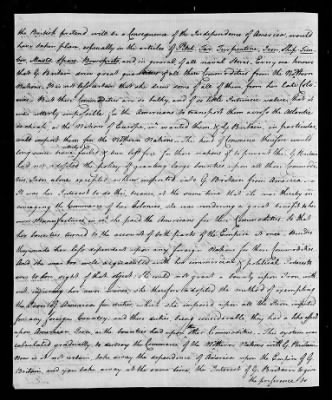 the British pretend will be a Consequence of the Independence of America, would
have taken place, especially in the articles of Pitch Tar, Turpentine, Iron, Ship Tim-
ber, Masts Spars Bowsprits, and in general of all naval Stores. Every one knows
that G. Britain drew great quantities of all these Commodities from the Northern
Nations. It is not less certain that she drew some of all of them from her late Colo-
nies. But these Commodities are so bulky, and of so little intrinsic value, that it
was utterly impossible for the Americans to transport them across the Atlantic
as cheap as the Nations of Europe, in
would import them from the Northern Nations. The
 had not adopted the policy of granting large bounties upon all these Commodi-
ties, Iron alone excepted when imported into G. Britain from America.
It was her Interest to do this, because at the same time that she was thereby en-
couraging the Commerce of her Colonies, she was rendering a great benefit to her
own Manufactures in which she paid the Americans for their Commodities. So that
her bounties turned to the account of both parts of the Empire at once. Besides
they made her less dependent upon any foreign Nation for these Commodities
And she was too well acquainted with her commercial & political Interests
ever to lose sight of that object. She could not grant a bounty upon Iron with-
out injuring her own Mines; she therefore adopted the method of exempting
the Iron of America from duties, which she imposed upon all the Iron imported
from any foreign Country, and these duties being considerable, they had a like effect
upon American Iron, as the bounties had upon the other Commodities. This system was
calculated gradually to destroy the Commerce of the Northern Nations with G. Britain.
Now is it not certain, take away the dependence of America upon the Empire of G.
Britain, and you take away at the same time, the Interest of G. Britain to give
the preference to